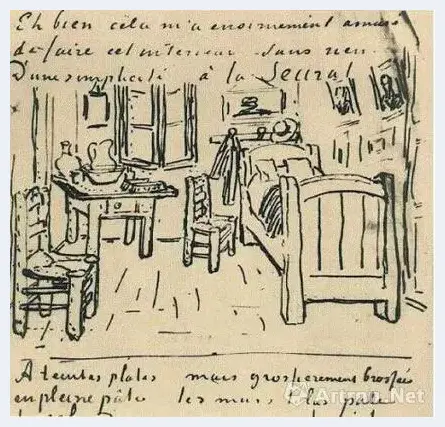 Eh bien cela m'a enormement amusé
de faire cet interieur Sans rien
D'une simplicité à la Seurat
A teintes plates mais grossierement brossées
en pleine pâte les murs lilas pale